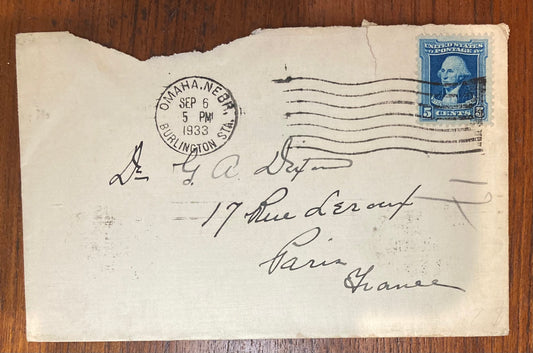 UNITED STATES
POSTAGE
5 CENTS 5
OMAHA, NEBR.
SEP 6
5 PM
1933
BURLINGTON STA.
Dr G A Dixon
17 Rue Leroux
Paris
France